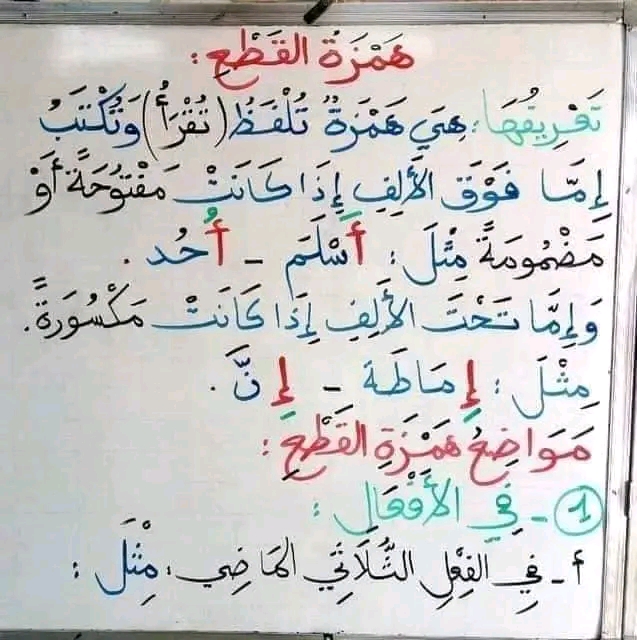 هَمْزَةُ القَطْعِ :
تَعْرِيفُهَا : هِيَ هَمْزَةٌ تُلْفَظُ ( تُقْرَأُ ) وَتُكْتَبُ
إِمَّا فَوْقَ الأَلِفِ إِذَا كَانَتْ مَفْتُوحَةً أَوْ
مَضْمُومَةً مِثْلَ : أَسْلَمَ - أُحُد .
وَإِمَّا تَحْتَ الأَلِفِ إِذَا كَانَتْ مَكْسُورَةً .
مِثْلَ : إِمَاطَة - إِنَّ .
مَوَاضِعُ هَمْزَةِ القَطْعِ :
1 - فِي الأَفْعَالِ :
أ - فِي الفِعْلِ الثُّلَاثِي المَاضِي ، مِثْلَ :